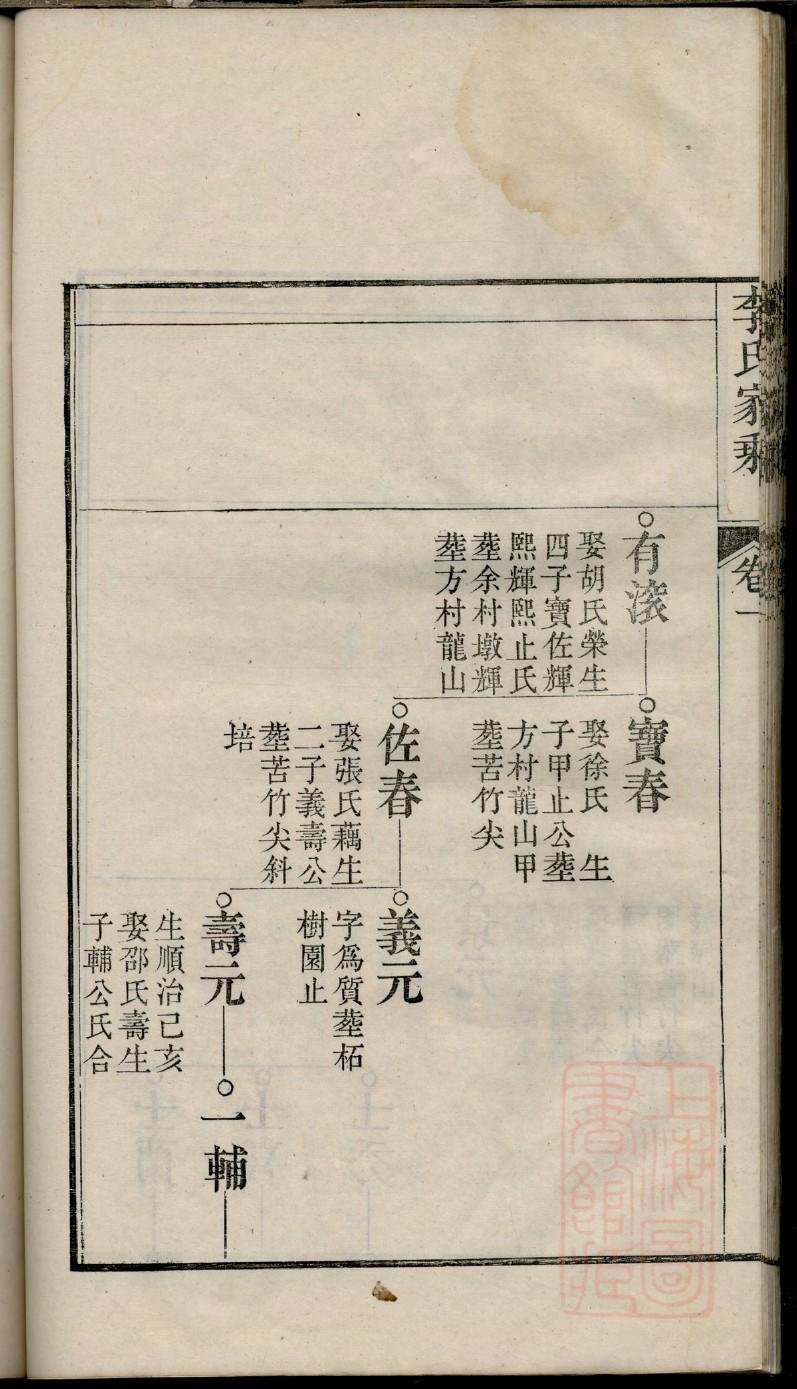 李氏家乘
卷一
有滚
娶胡氏榮生
四子寶佐輝
熙輝熙止氏
塟余村墩輝
塟方村龍山
寶春
娶徐氏 生
子甲止公塟
方村龍山甲
塟苦竹尖
佐春
娶張氏藕生
二子義壽公
塟苦竹尖斜
培
義元
字爲質塟柘
樹園止
壽元
生順治己亥
娶邵氏壽生
子輔公氏合
一輔
上海圖
書館藏